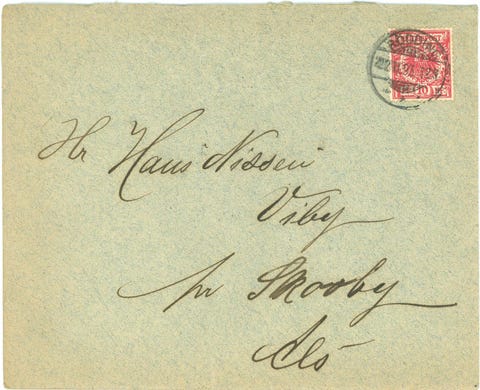 Hr Hans Nissen
Viby
pr Skovby
Als
10